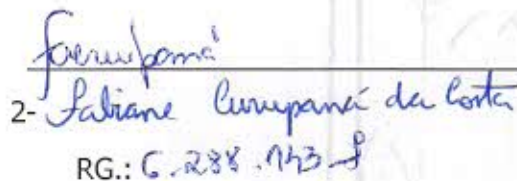 2- Fabiane Curupaná da Costa
RG.: 6.288.143-8